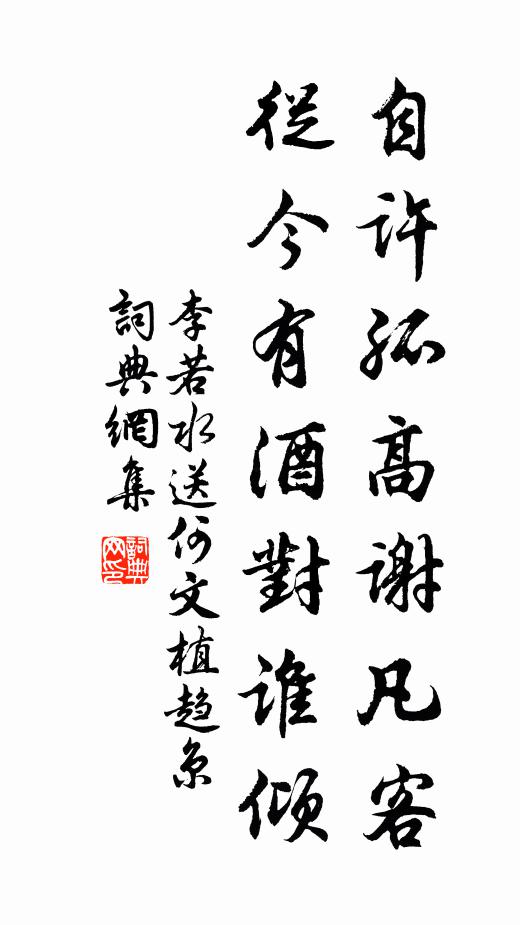 自許孤高謝凡客
從今有酒對誰傾
李若水送何文植趨京
詞典網集
詞典网印